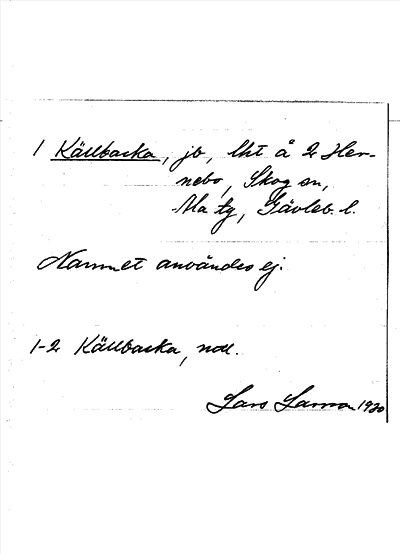 1 Källbacka, jb, lht å 2 Her-
nebo, Skog sn,
Ala tg, Gävleb. l.
Namnet användes ej.
1-2 Källbacka, ndl.
Lars Larsson 1930